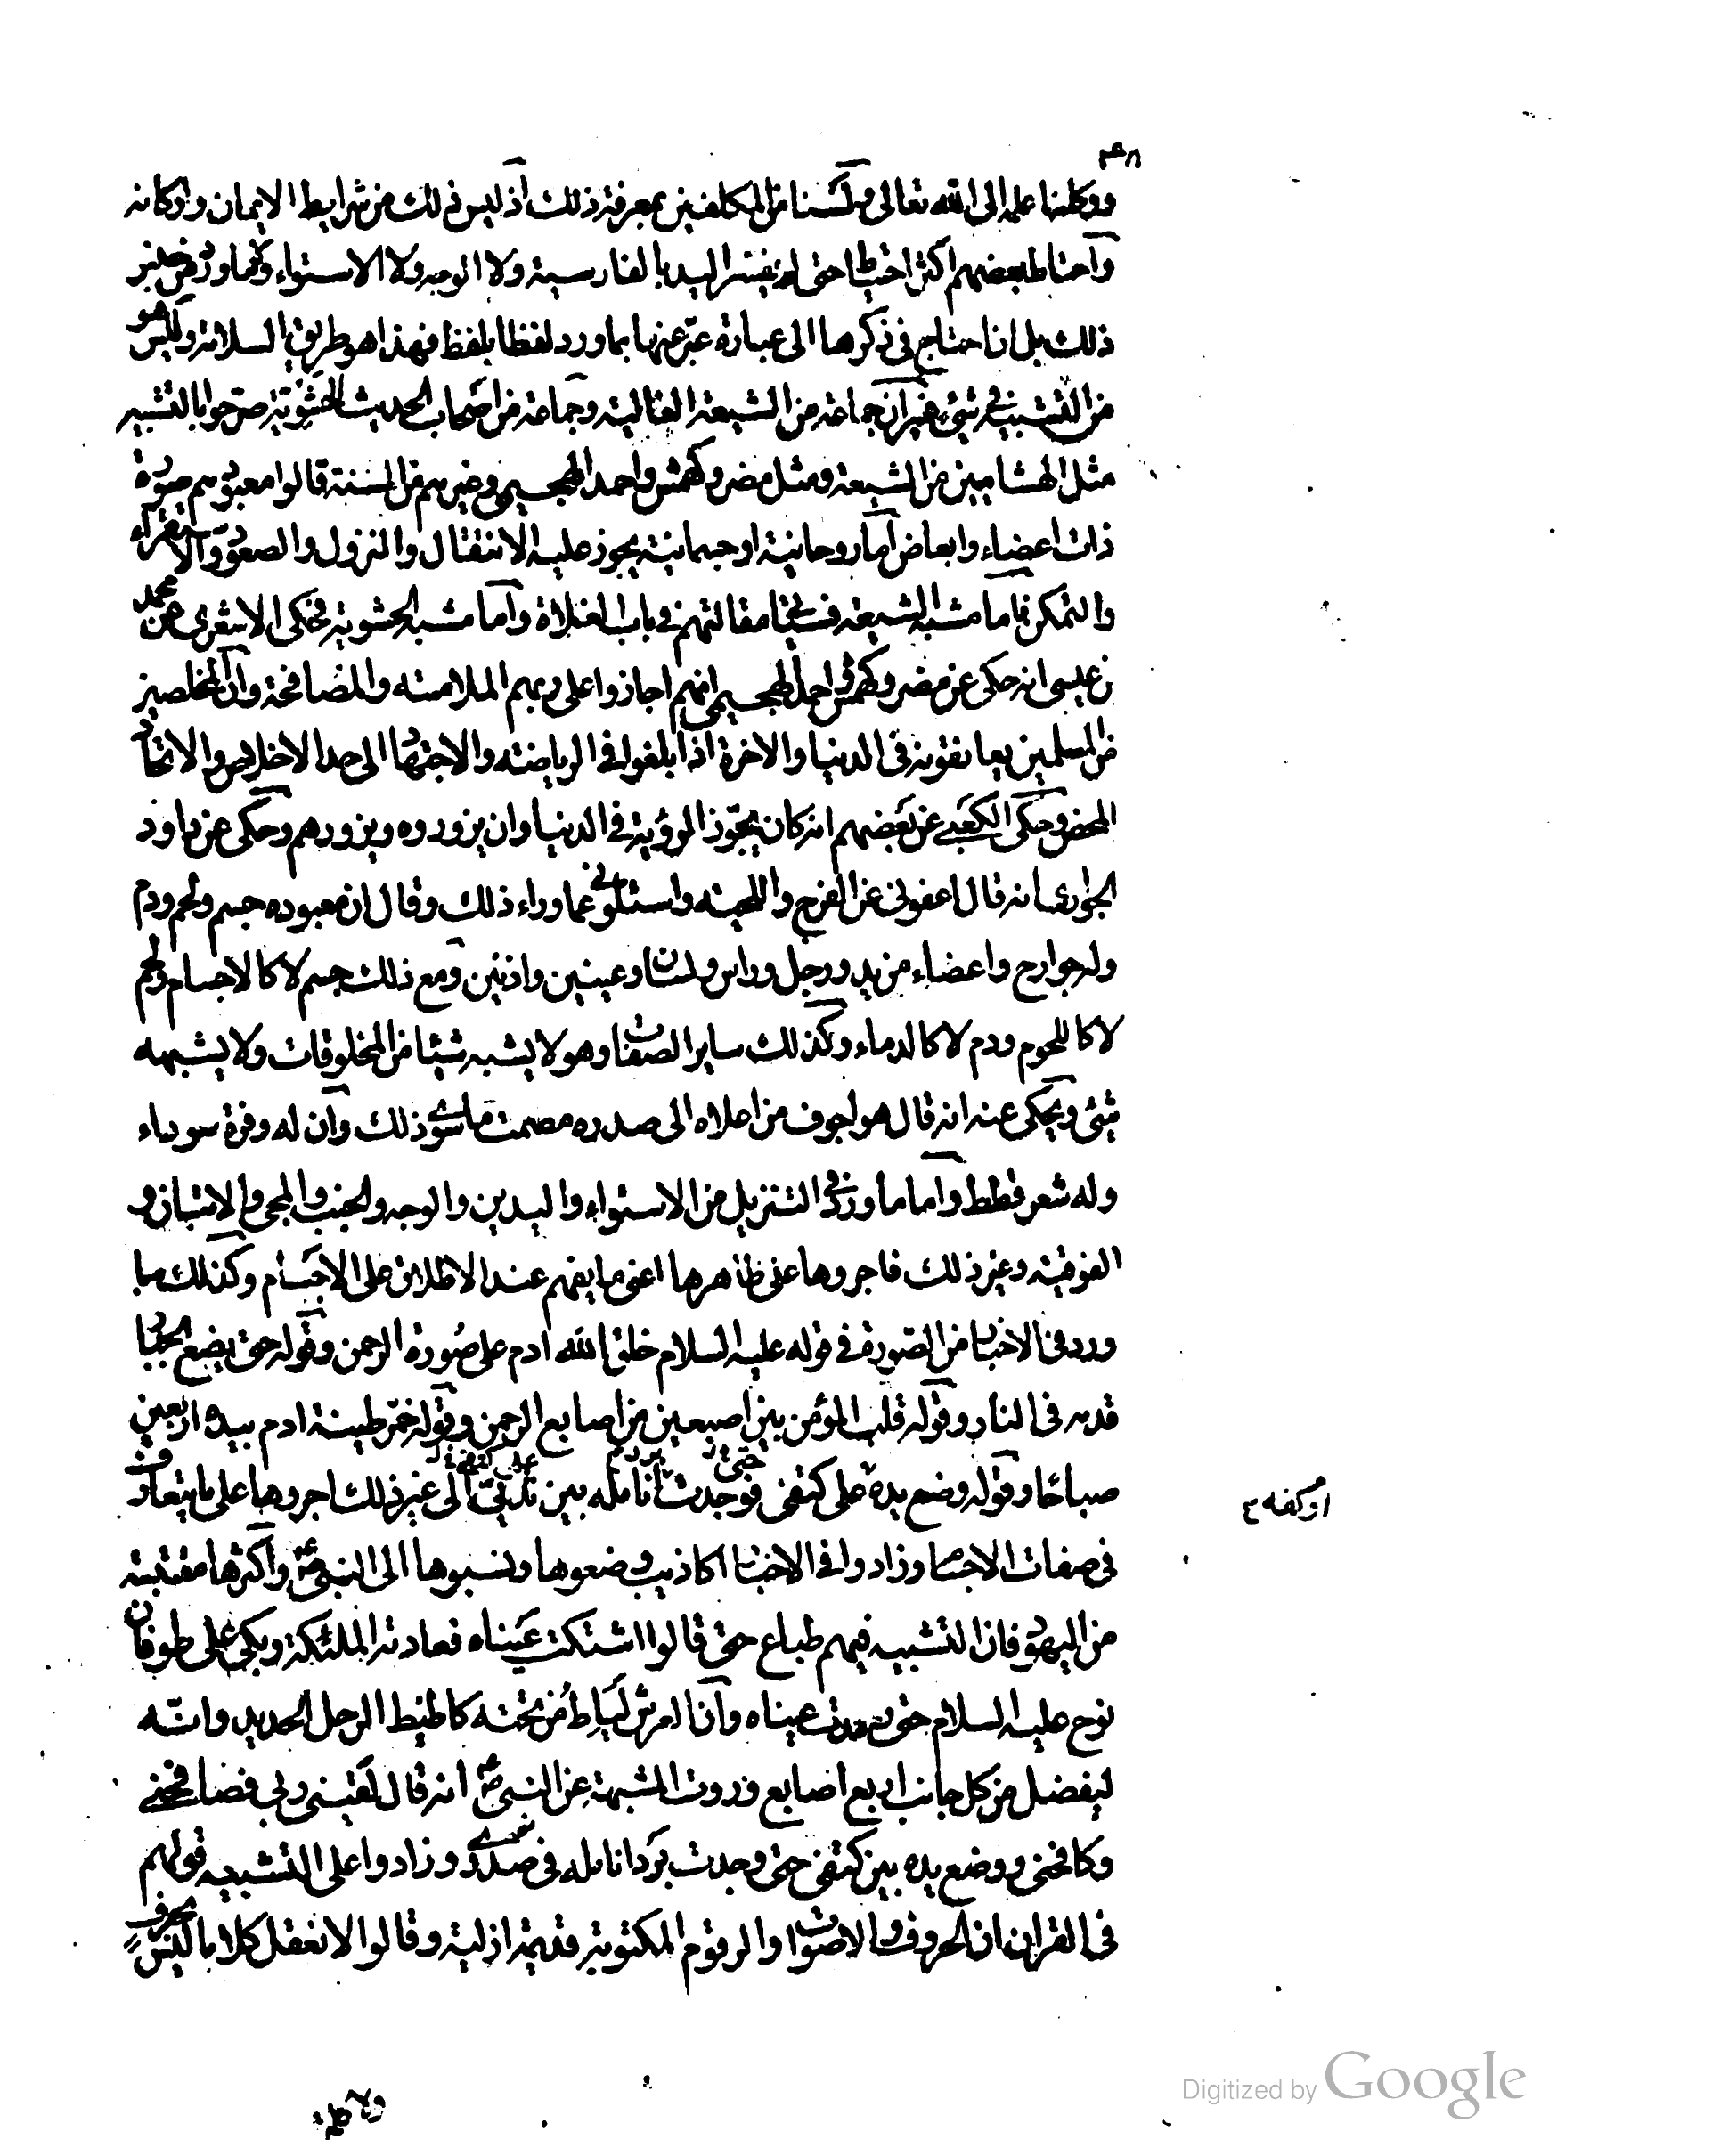 ٤٨
ووكلنا علمه الى الله تعالى ولسنا من المكلفين بمعرفة ذلك اذ ليس ذلك من شرايط الايمان واركانه
واحتاط بعضهم اكثر احتياط حتى لم يفسر اليد بالفارسية ولا الوجه ولا الاستواء ولا ما ورد من جنس
ذلك بل ان احتاج في ذكرها الى عبارة عبر عنها بما ورد لفظا بلفظ فهذا هو طريق السلامة وليس هو
من التشبيه في شئ غير ان جماعة من الشيعة الغالية وجماعة من اصحاب الحديث الحشوية صرحوا بالتشبيه
مثل الهشاميين من الشيعة ومثل مضر وكهمش واحمد الهجيمي وغيرهم من السنة قالوا معبودهم صورة
ذات اعضاء وابعاض اما روحانية او جسمانية يجوز عليه الانتقال والنزول والصعود والاستقرار
والتمكن فاما مشبهة الشيعة فستجئ مقالتهم في باب الغلاة واما مشبهة الحشوية فحكى الاشعري عن محمد
بن عيسى انه حكى عن مضر وكهمش واحمد الهجيمي انهم اجازوا على ربهم الملامسة والمصافحة وان المخلصين
من المسلمين يعانقونه في الدنيا والاخرة اذا بلغوا في الرياضة والاجتهاد الى حد الاخلاص والاتحاد
المحض وحكى الكعبي عن بعضهم انه كان يجوز الرؤية في الدنيا وان يزوروه ويزورهم وحكى عن داود
الجواربي انه قال اعفوني عن الفرج واللحية واسئلوني عما وراء ذلك وقال ان معبوده جسم ولحم ودم
وله جوارح واعضاء من يد ورجل وراس ولسان وعينين واذنين ومع ذلك جسم لا كالاجسام ولحم
لا كاللحوم ودم لا كالدماء وكذلك ساير الصفات وهو لا يشبه شيئا من المخلوقات ولا يشبهه
شئ ويحكى عنه انه قال هو اجوف من اعلاه الى صدره مصمت ما سوى ذلك وان له وفرة سوداء
وله شعر قطط واما ما ورد في التنزيل من الاستواء واليدين والوجه والجنب والمجئ والاتيان و
الفوقية وغير ذلك فاجروها على ظاهرها اعني ما يفهم عند الاطلاق على الاجسام وكذلك ما
ورد في الاخبار من الصورة في قوله عليه السلام خلق الله ادم على صورة الرحمن وقوله حتى يضع الجبار
قدمه في النار وقوله قلب المؤمن بين اصبعين من اصابع الرحمن وقوله خمر طينة ادم بيده اربعين
صباحا وقوله وضع يده على كتفي حتى فوجدت برد انامله بين ثديي الى غير ذلك اجروها على ما يتعارف
او كفه
في صفات الاجسام وزادوا في الاخبار اكاذيب وضعوها ونسبوها الى النبي واكثرها مقتبسة
من اليهود فان التشبيه فيهم طباع حتى قالوا اشتكت عيناه فعادته الملئكة وبكى على طوفان
نوح عليه السلام حتى رمدت عيناه وان العرش ليأط من تحته كاطيط الرحل الحديد وانه
ليفضل من كل جانب اربع اصابع وروت المشبهة عن النبي انه قال لقيني ربي فصافحني
وكافحني ووضع يده بين كتفي حتى وجدت برد انامله في صدري وزادوا على التشبيه قولهم
في القران ان الحروف والاصوات والرقوم المكتوبة قديمة ازلية وقالوا لا نعقل كلاما ليس بحروف
ولا كلمة
Digitized by Google